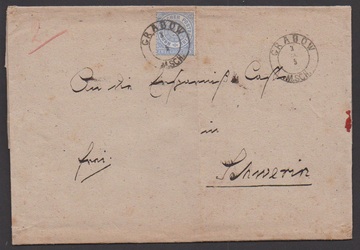 GRABOW
GRABOW
An die Ersparniß Casse
in
frei.
Schwerin